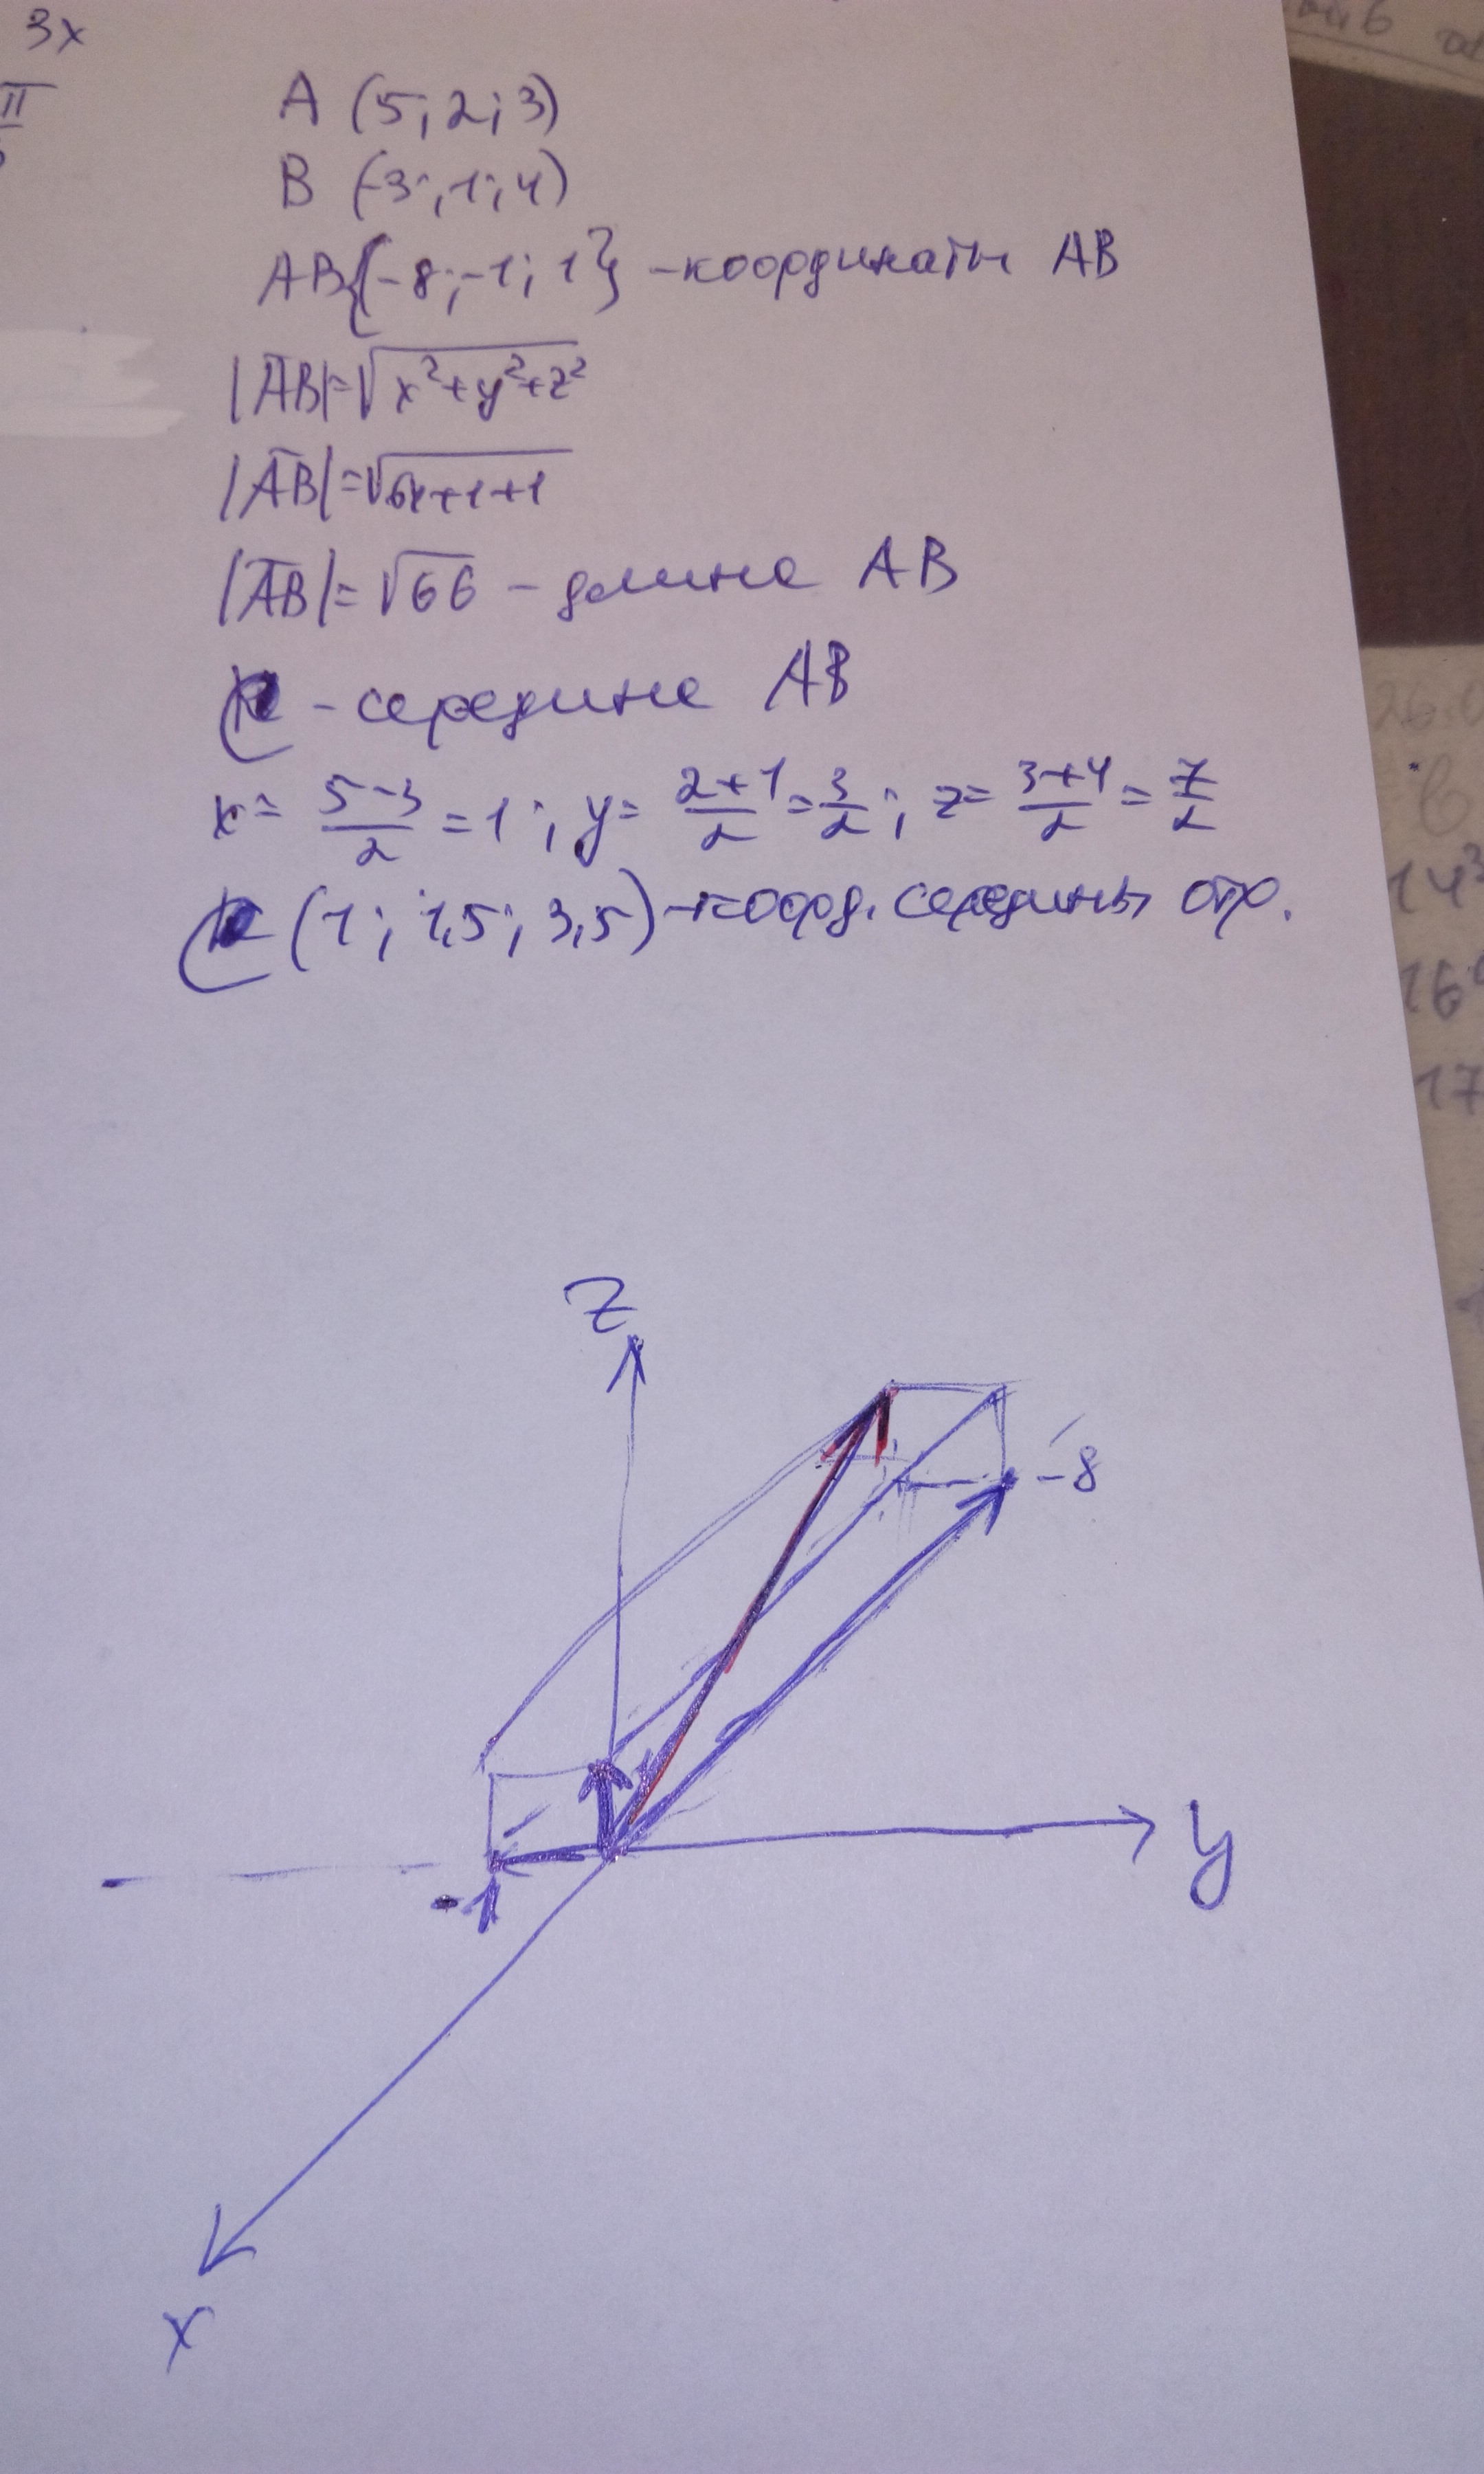 3x
π
A (5; 2; 3)
B (-3; 1; 4)
AB{-8; -1; 1} - координаты AB
|AB| = √x²+y²+z²
|AB| = √64+1+1
|AB| = √66 - длина AB
C - середина AB
x = 5-3/2 = 1; y = 2+1/2 = 3/2; z = 3+4/2 = 7/2
C (1; 1,5; 3,5) - коорд. середины отр.
z
-8
y
-1
x
26.
6
14³
16
17